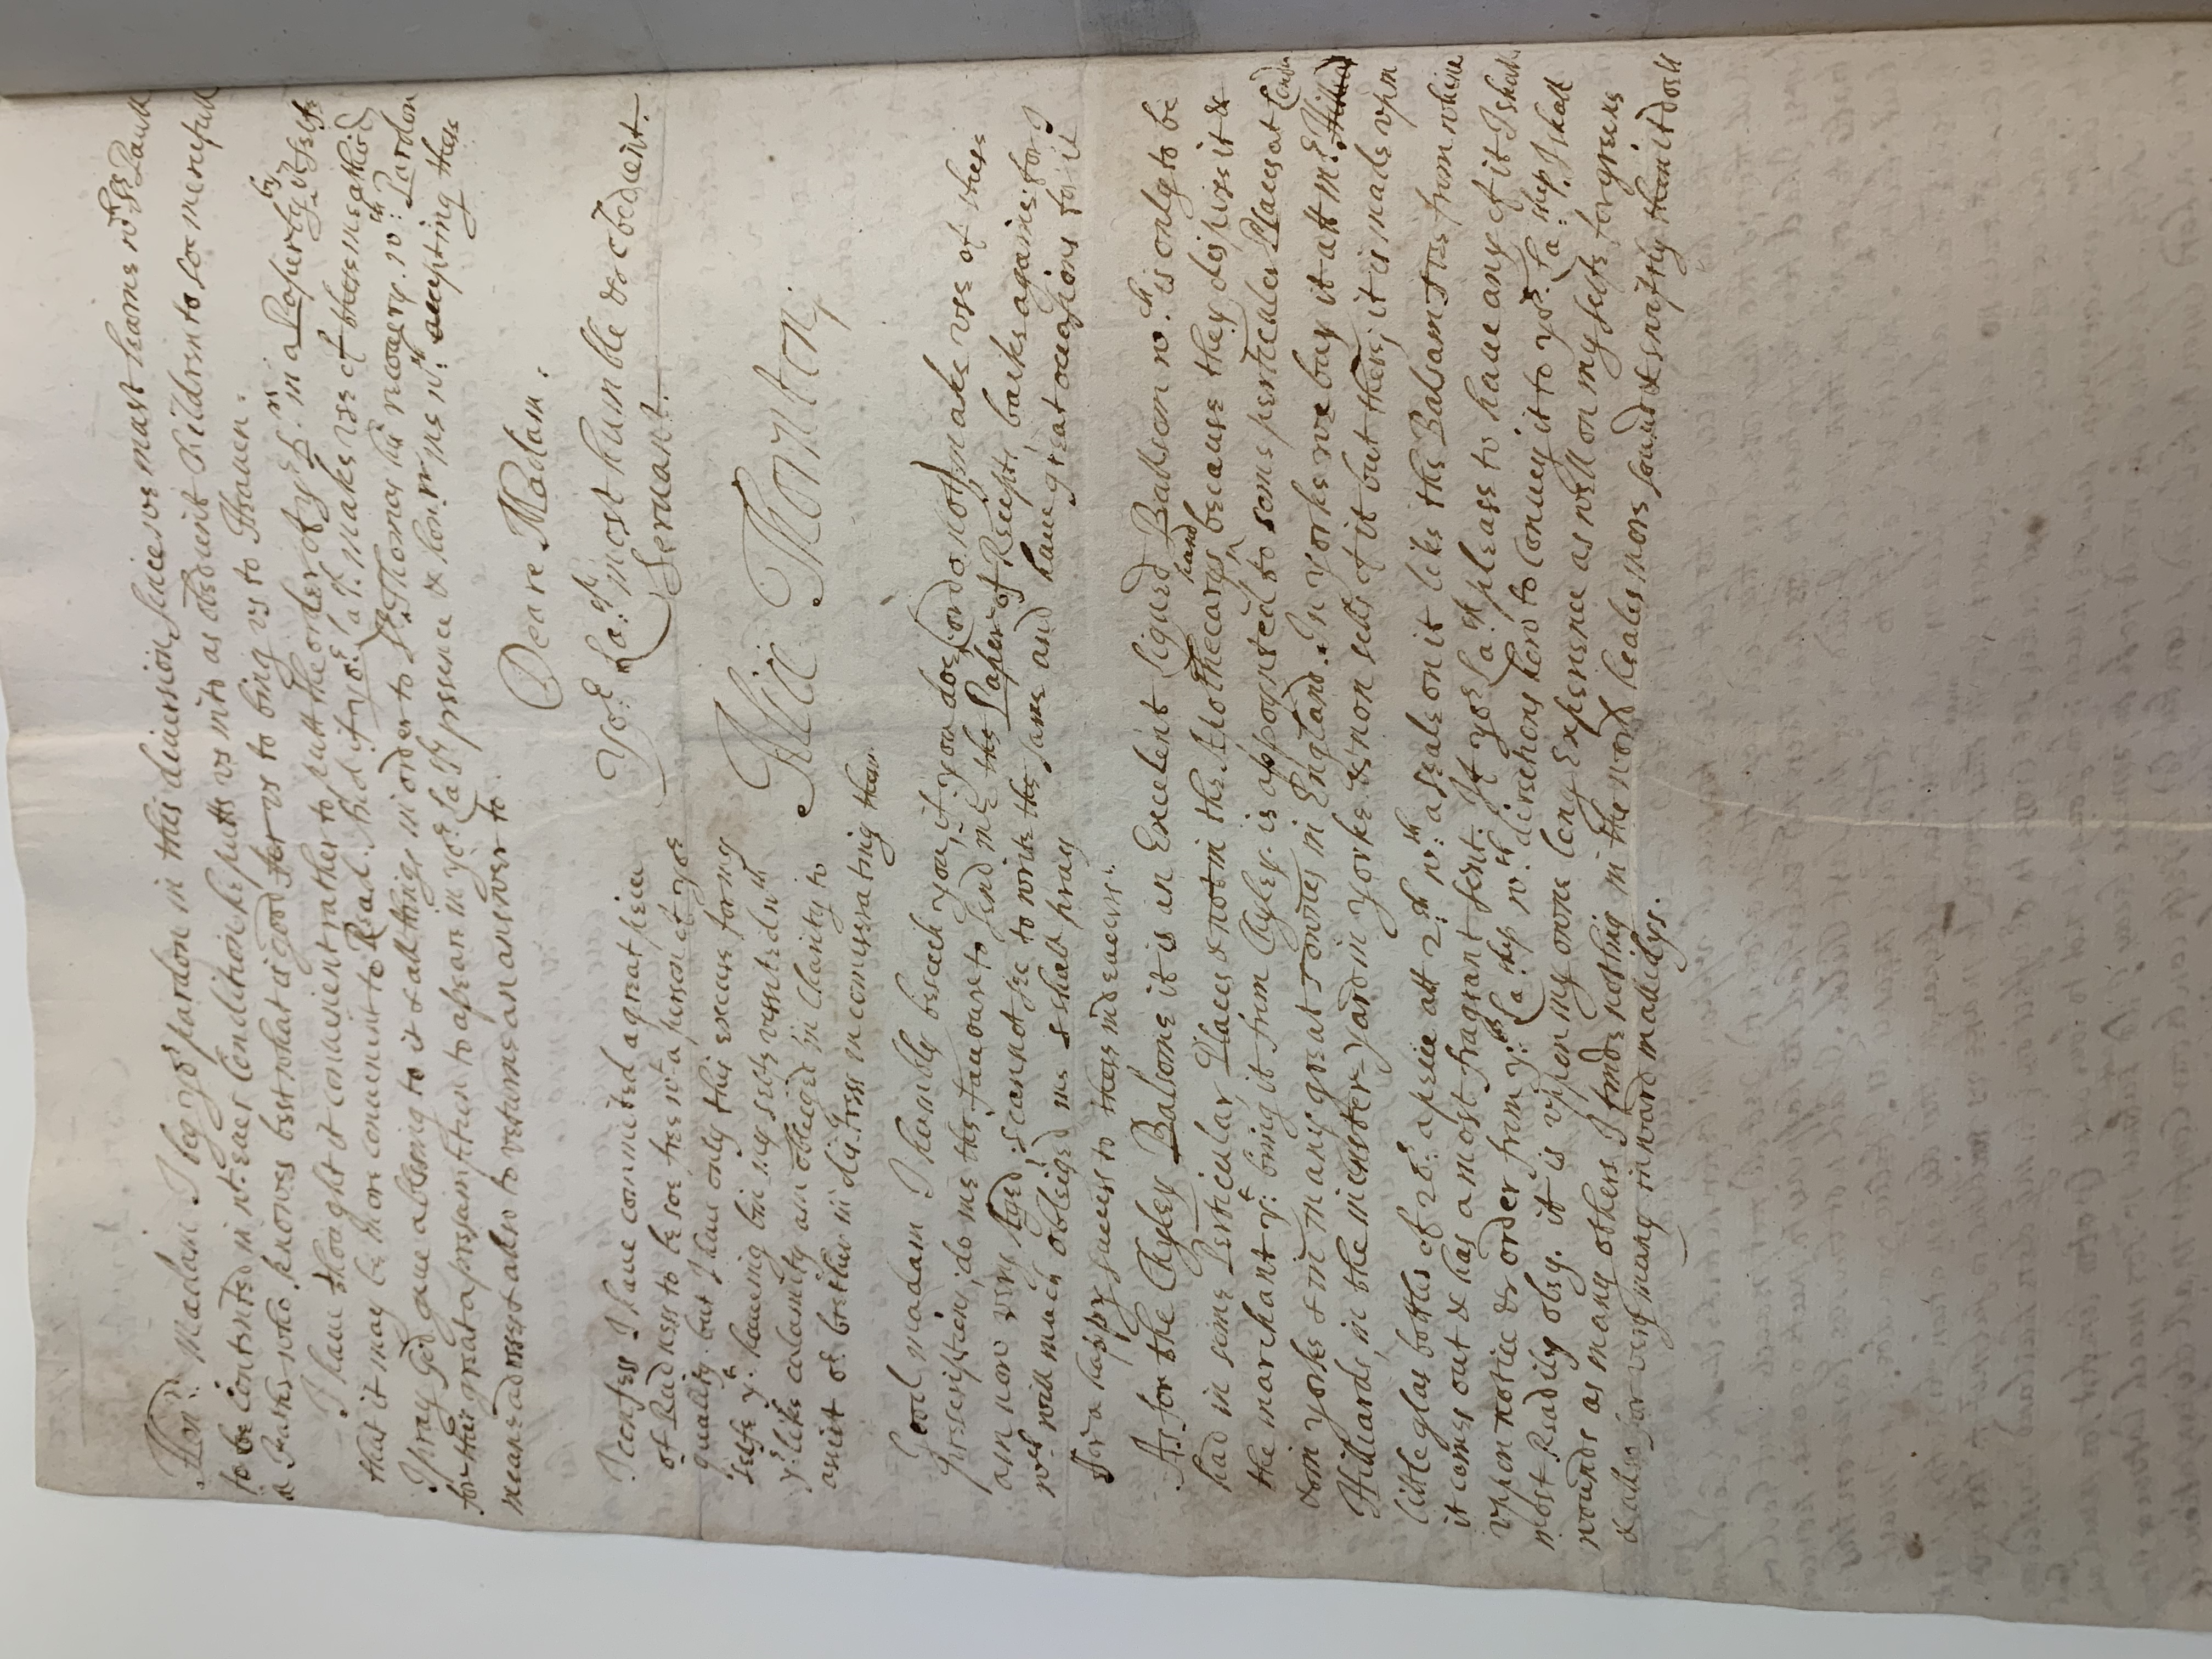 Honrd: Madam I beg yor pardon in this diuersion, since we must learne wth St Paull
to be Contented in wt. euer Condition he putts vs into as obedient Children to soe mercifull
a Father who knowes best what is good for vs to bing vs to Heauen.
I haue thought it conuenient rather to putt the order of ye in a Paper by it selfe
that it may be more conuenient to Read. And if yor: Lapp. make vse of these meathod,
I pray God giue a blessing to it & all things in order to Sr. Thomas his recouery. wth: Pardon
for this great a presumption to apeare in yor: Lapps presence & honrr me wth. accepting these
meane adresses & allso to returne an answer to.
Deare Madam.
Yor: La:sps most humble & obedient.
Seruant.
Alice Thornton;
I confess I haue commited a great peice
of Rudness to be soe free wt a person of yor
quallity. but I haue only this excuse for my
selfe yt. haueing bin my selfe vissited wth
ye. like calamity am obleiged in Charity to
assist or. brether in distress in comiserating them.
Good madam I humbly beseech you, if you doe, (or do not) make vse of these
prescriptions; do me the fauoure to send me the Paper of Recepts, backe againe. for I
am now very Aged, & cannot see to write the same and haue great occasions for it
wch. will much obleiged me & shall pray
for a happy success to these indeauours.
As for the Chyley Balsome it is an Excelent Liqued Ballsom w:ch is only to be
had in some Perticular, Places & not in the Apothecarys hand, because they dispise it &
the marchant yt. bring it from Chyley. is appoynted to some perticuler Places at London
& in yorke & in many great Townes in England. In yorke we buy it att mr. Hilliard
Hilliards, in the minster-yard in yorke. & non sells of it but there; it is made vp in
little glas bottles of a peice att 2:sh w:th a seale on it like the Balsam Tree from whence
it comes out & has a most fragrant sent. If yor La:sp please to haue any of it I shall
vppon notice & order from yr. La:shep w:th directions how to Conuey it to yor. La:shep. I shall
most Readily obey. it is vppon my owne long Experience as well on my selfe for greene
wounds as many others I finde nothing in the world heales more sound & swiftly then it doeth
& allso for very many inward mallidys.